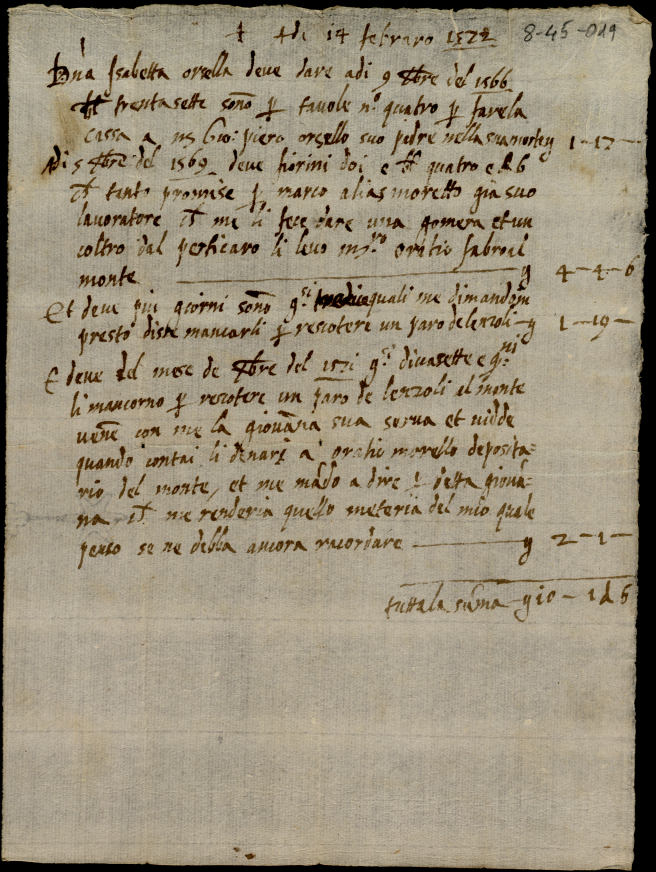 + Adi 14 febraro 1572 8-45-019
Dna Isabetta orsella deve dare adi 9 Xbre del 1566
trentasette sono p tavole n.o quatro p far la
cassa a ms Gio: piero orsello suo padre nella sua morte 1-17-
Adi 5 Xbre del 1569 deve fiorini doi e quatro e 6
tanto promise p marco alias moretto gia suo
lavoratore me li fece dare una gomera et un
coltro dal perticaro li levo m.ro oratio fabro al
monte 4-4-6
Et deve piu giorni sono quali me dimandono
presto diste mancarli p rescotere un paro de lenzoli 1-19-
E deve del mese de Xbre del 1571 dicasette e
li mancorno p rescotere un paro de lenzoli al monte
vene con me la giovana sua serva et vidde
quando contai li denari a oratio morello deposita=
rio del monte, et me mado a dire p detta giova=
na me renderia quello meteria del mio quale
penso se ne debba ancora racordare 2-1-
tutta la suma 10-1 d 6